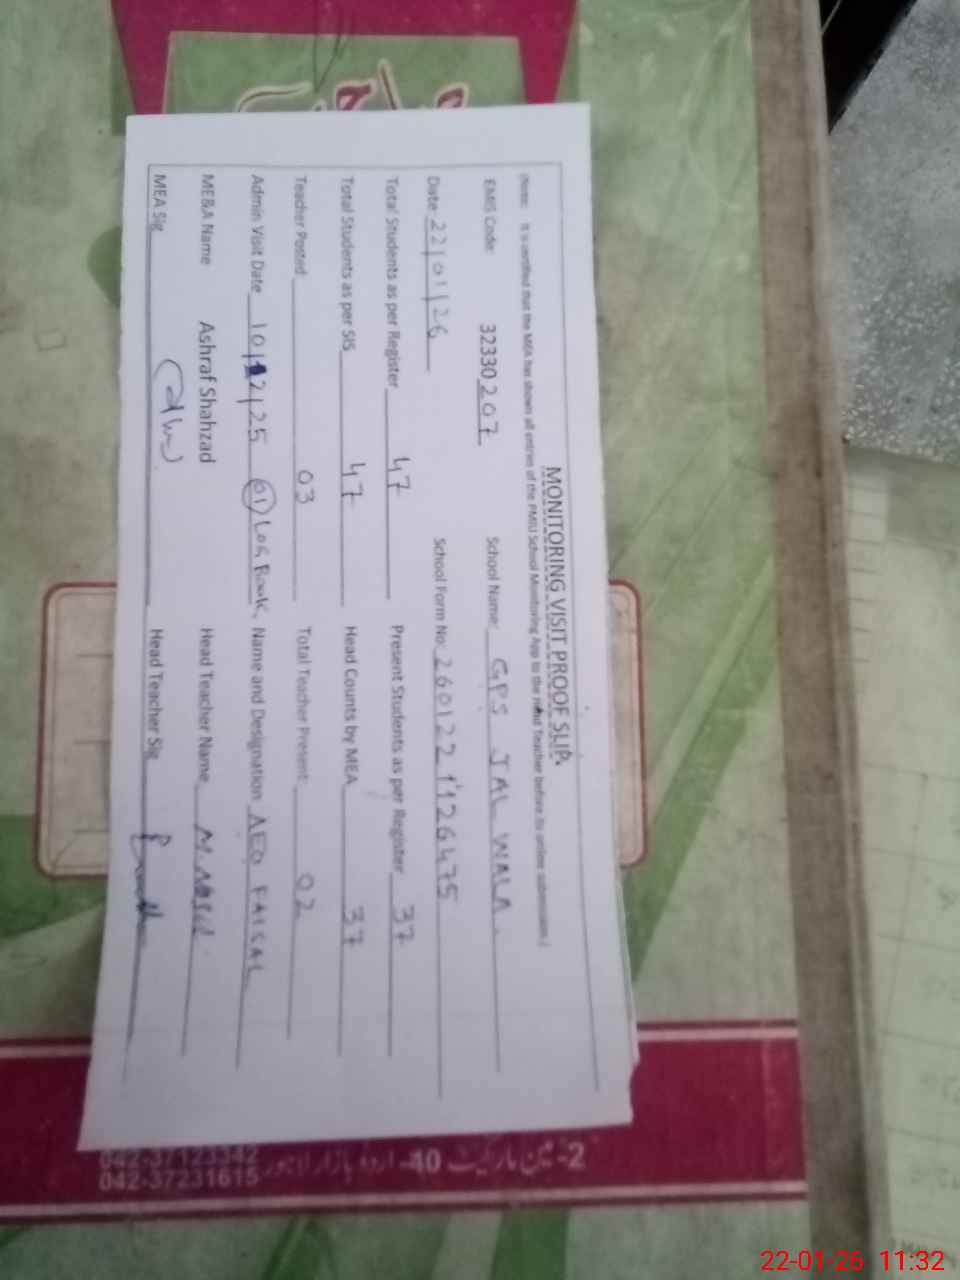 MONITORING VISIT PROOF SLIP.
(Note: It is certified that the MEA has shown all entries of the PMIU School Monitoring App to the Head Teacher before its online submission.)
EMIS Code: 32330207 School Name: GPS JAL WALA.
Date 22/01/26 School Form No: 2601221126475
Total Students as per Register 47 Present Students as per Register 37
Total Students as per SIS 47 Head Counts by MEA 37
Teacher Posted 03 Total Teacher Present: 02
Admin Visit Date 10/12/25 01 Log Book. Name and Designation AEO FAISAL
ME&A Name Ashraf Shahzad Head Teacher Name M.
MEA Sig Head Teacher Sig
2-مین مارکیٹ 40-اردو بازار لاہور
042-37123342
042-37231615
22-01-26 11:32